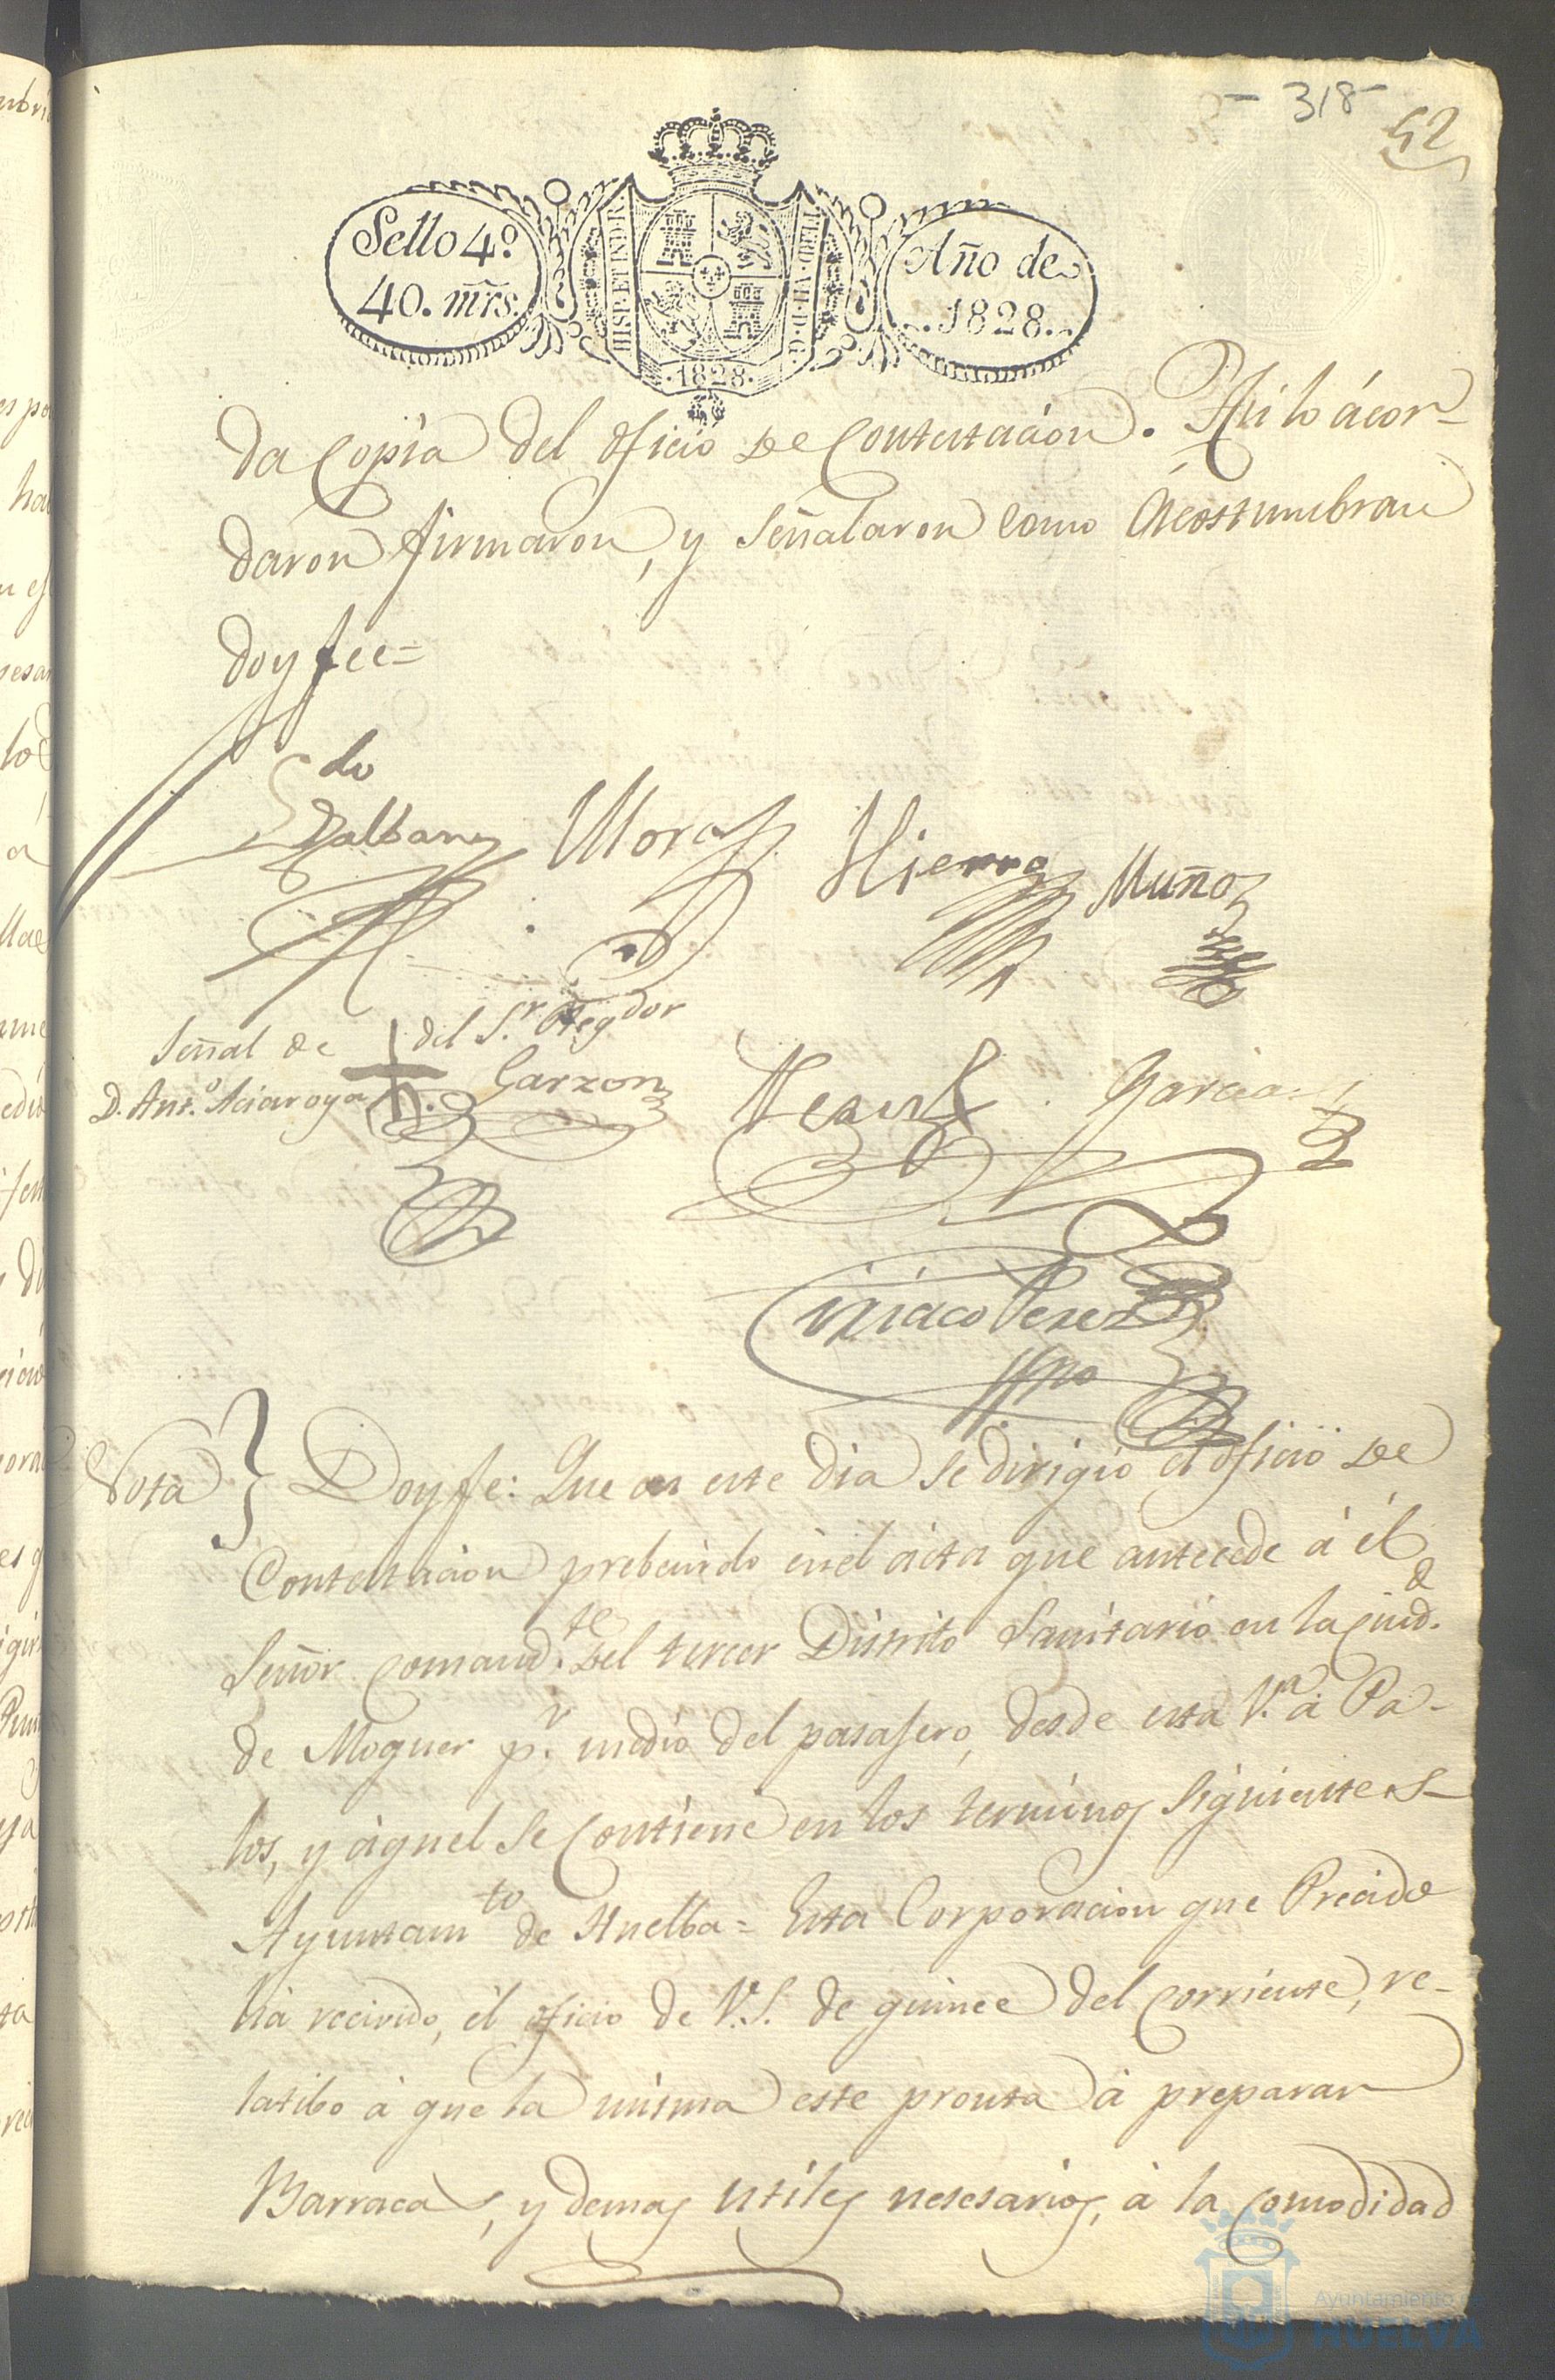 - 318 -
52
Sello 4º.
40. mrs.
HISP. ET IND. R.
FERD. VII. D. G.
Año de
1828.
·1828·
da copia del oficio de Contestación. Asi lo ácor-
daron firmaron, y señalaron como ácostumbran
doy fee=
Ldo
Balbuena Mora Hierro Muñoz
Señal de + del Sr. Regdor
D. Anto. Garzon Garcia
Ciriaco Perez
Ssno
Nota } Doy fe: Que en este dia se dirigió el oficio de
Contestacion prebenido en el ácta que antecede á él
Señor Comandte. del tercer Distrito Sanitario en la Ciudd.
de Moguer pr. medio del pasagero, desde esta Va. á Pa-
los, y áquel se Contiene en los terminos siguientes-
Ayuntamto de Huelba= Esta Corporacion que Precido
há recivido, él oficio de V.S. de quince del corriente, re-
latibo á que la misma este pronta á preparar
Barraca, y demas utiles nesesarios, á la comodidad
Ayuntamiento de
HUELVA